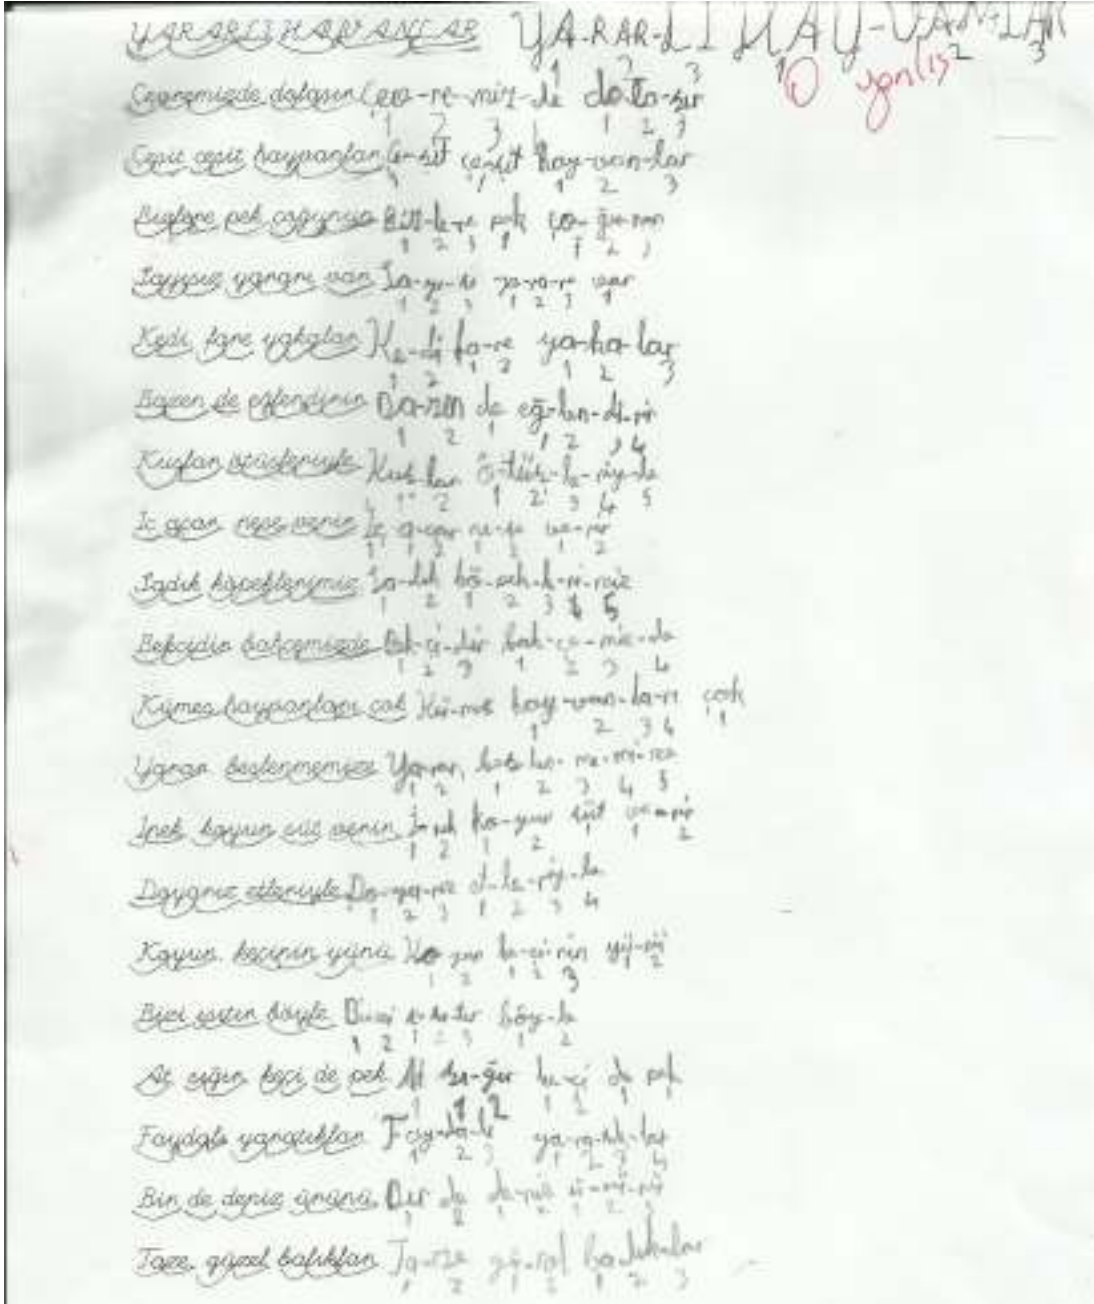 YARARLI HAYVANLAR YA-RAR-LI HAY-VAN-LAR
1 2 3 1 2 3
1 yanlış
Çevremizde dolaşır Çev-re-miz-de do-la-şır
1 2 3 4 1 2 3
Çeşit çeşit hayvanlar Çe-şit çe-şit hay-van-lar
1 2 3
Bizlere pek çoğunun Biz-le-re pek ço-ğu-nun
1 2 3 1 1 2 3
Sayısız yararı var Sa-yı-sız ya-ra-rı var
1 2 3 1 2 3 1
Kedi fare yakalar Ke-di fa-re ya-ka-lar
1 2 1 2 1 2 3
Bazen de eğlendirir Ba-zen de eğ-len-di-rir
1 2 1 1 2 3 4
Kuşlar ötüşleriyle Kuş-lar ö-tüş-le-riy-le
1 2 1 2 3 4 5
İç açar neşe verir İç a-çar ne-şe ve-rir
1 1 2 1 2 1 2
Sadık köpeklerimiz Sa-dık kö-pek-le-ri-miz
1 2 1 2 3 4 5
Bekçidir bahçemizde Bek-çi-dir bah-çe-miz-de
1 2 3 1 2 3 4
Kümes hayvanları çok Kü-mes hay-van-la-rı çok
1 2 3 4 1
Yarar beslenmemize Ya-rar bes-len-me-mi-ze
1 2 1 2 3 4 5
İnek koyun süt verir İ-nek ko-yun süt ve-rir
1 2 1 2 1 1 2
Doyarız etleriyle Do-ya-rız et-le-riy-le
1 2 3 1 2 3 4
Koyun keçinin yünü Ko-yun ke-çi-nin yü-nü
1 2 1 2 3 1 2
Bizi ısıtır böyle Bi-zi ı-sı-tır böy-le
1 2 1 2 3 1 2
At sığır keçi de pek At sı-ğır ke-çi de pek
1 1 2 1 2 1 1
Faydalı yaratıklar Fay-da-lı ya-ra-tık-lar
1 2 3 1 2 3 4
Bir de deniz ürünü Bir de de-niz ü-rü-nü
1 2 1 2 1 2 3
Taze güzel balıklar Ta-ze gü-zel ba-lık-lar
1 2 1 2 1 2 3